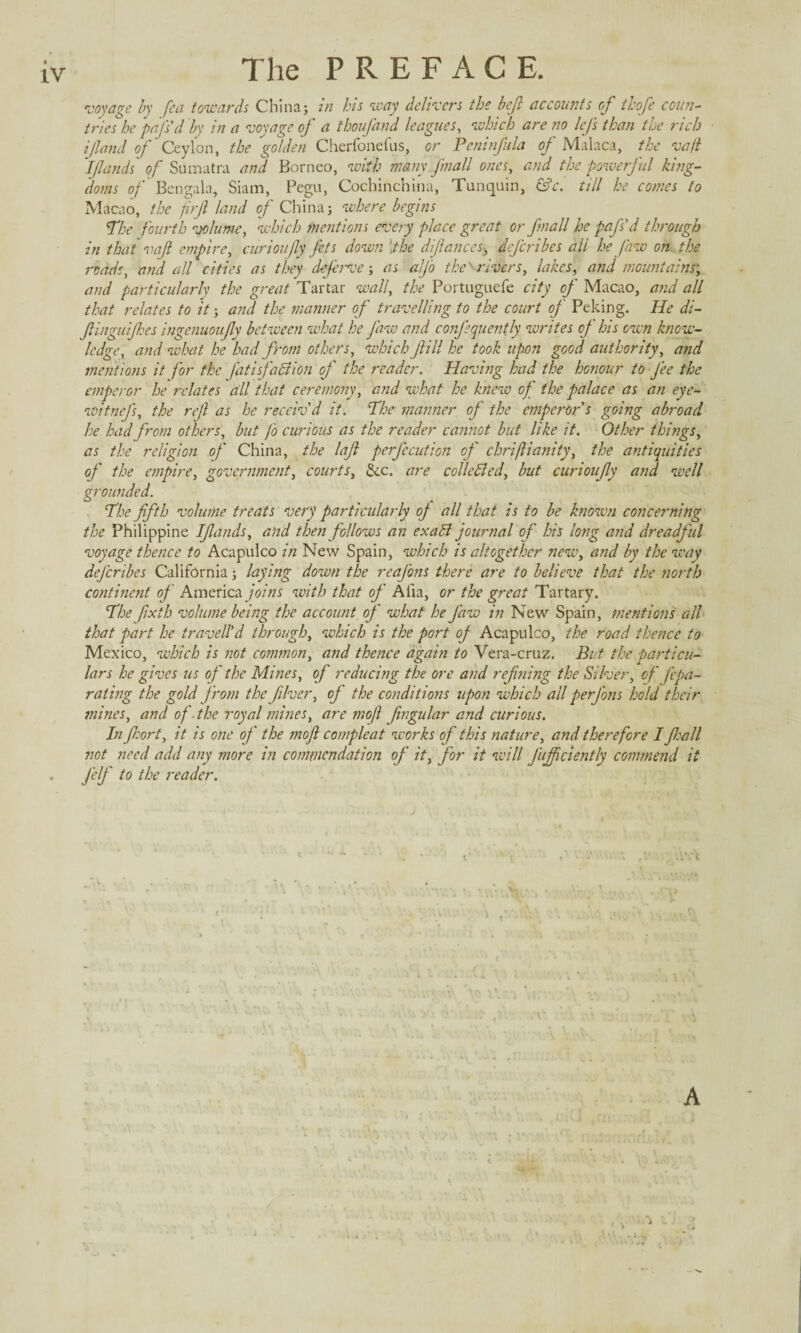 iv The PREFACE.
voyage by ſea towards China; in his way delivers the beſt accounts of thoſe coun-
tries he paſs'd by in a voyage of a thouſand leagues, which are no leſs than the rich
iſland of Ceylon, the golden Cherſoneſus, or Peninſula of Malaca, the vaſt
Iſlands of Sumatra and Borneo, with many ſmall ones, and the powerful king-
doms of Bengala, Siam, Pegu, Cochinchina, Tunquin, &c. till he comes to
Macao, the firſt land of China; where begins
The fourth volume, which mentions every place great or ſmall he paſs'd through
in that vaſt empire, curiouſly ſets down the diſtances, deſcribes all he ſaw on the
roads, and all cities as they deſerve; as alſo the rivers, lakes, and mountains;
and particularly the great Tartar wall, the Portugueſe city of Macao, and all
that relates to it; and the manner of travelling to the court of Peking. He di-
ſtinguiſhes ingenuouſly between what he ſaw and conſequently writes of his own know-
ledge, and what he had from others, which ſtill he took upon good authority, and
mentions it for the ſatisfaction of the reader. Having had the honour to ſee the
emperor he relates all that ceremony, and what he knew of the palace as an eye-
witneſs, the reſt as he receiv'd it. The manner of the emperor's going abroad
he had from others, but ſo curious as the reader cannot but like it. Other things,
as the religion of China, the laſt perſecution of chriſtianity, the antiquities
of the empire, government, courts, &c. are collected, but curiouſly and well
grounded.
The fifth volume treats very particularly of all that is to be known concerning
the Philippine Iſlands, and then follows an exact journal of his long and dreadful
voyage thence to Acapulco in New Spain, which is altogether new, and by the way
deſcribes California; laying down the reaſons there are to believe that the north
continent of America joins with that of Aſia, or the great Tartary.
The ſixth volume being the account of what he ſaw in New Spain, mentions all
that part he travell'd through, which is the port of Acapulco, the road thence to
Mexico, which is not common, and thence again to Vera-cruz. But the particu-
lars he gives us of the Mines, of reducing the ore and refining the Silver, of ſepa-
rating the gold from the ſilver, of the conditions upon which all perſons hold their
mines, and of the royal mines, are moſt ſingular and curious.
In ſhort, it is one of the moſt compleat works of this nature, and therefore I ſhall
not need add any more in commendation of it, for it will ſufficiently commend it
ſelf to the reader.
A